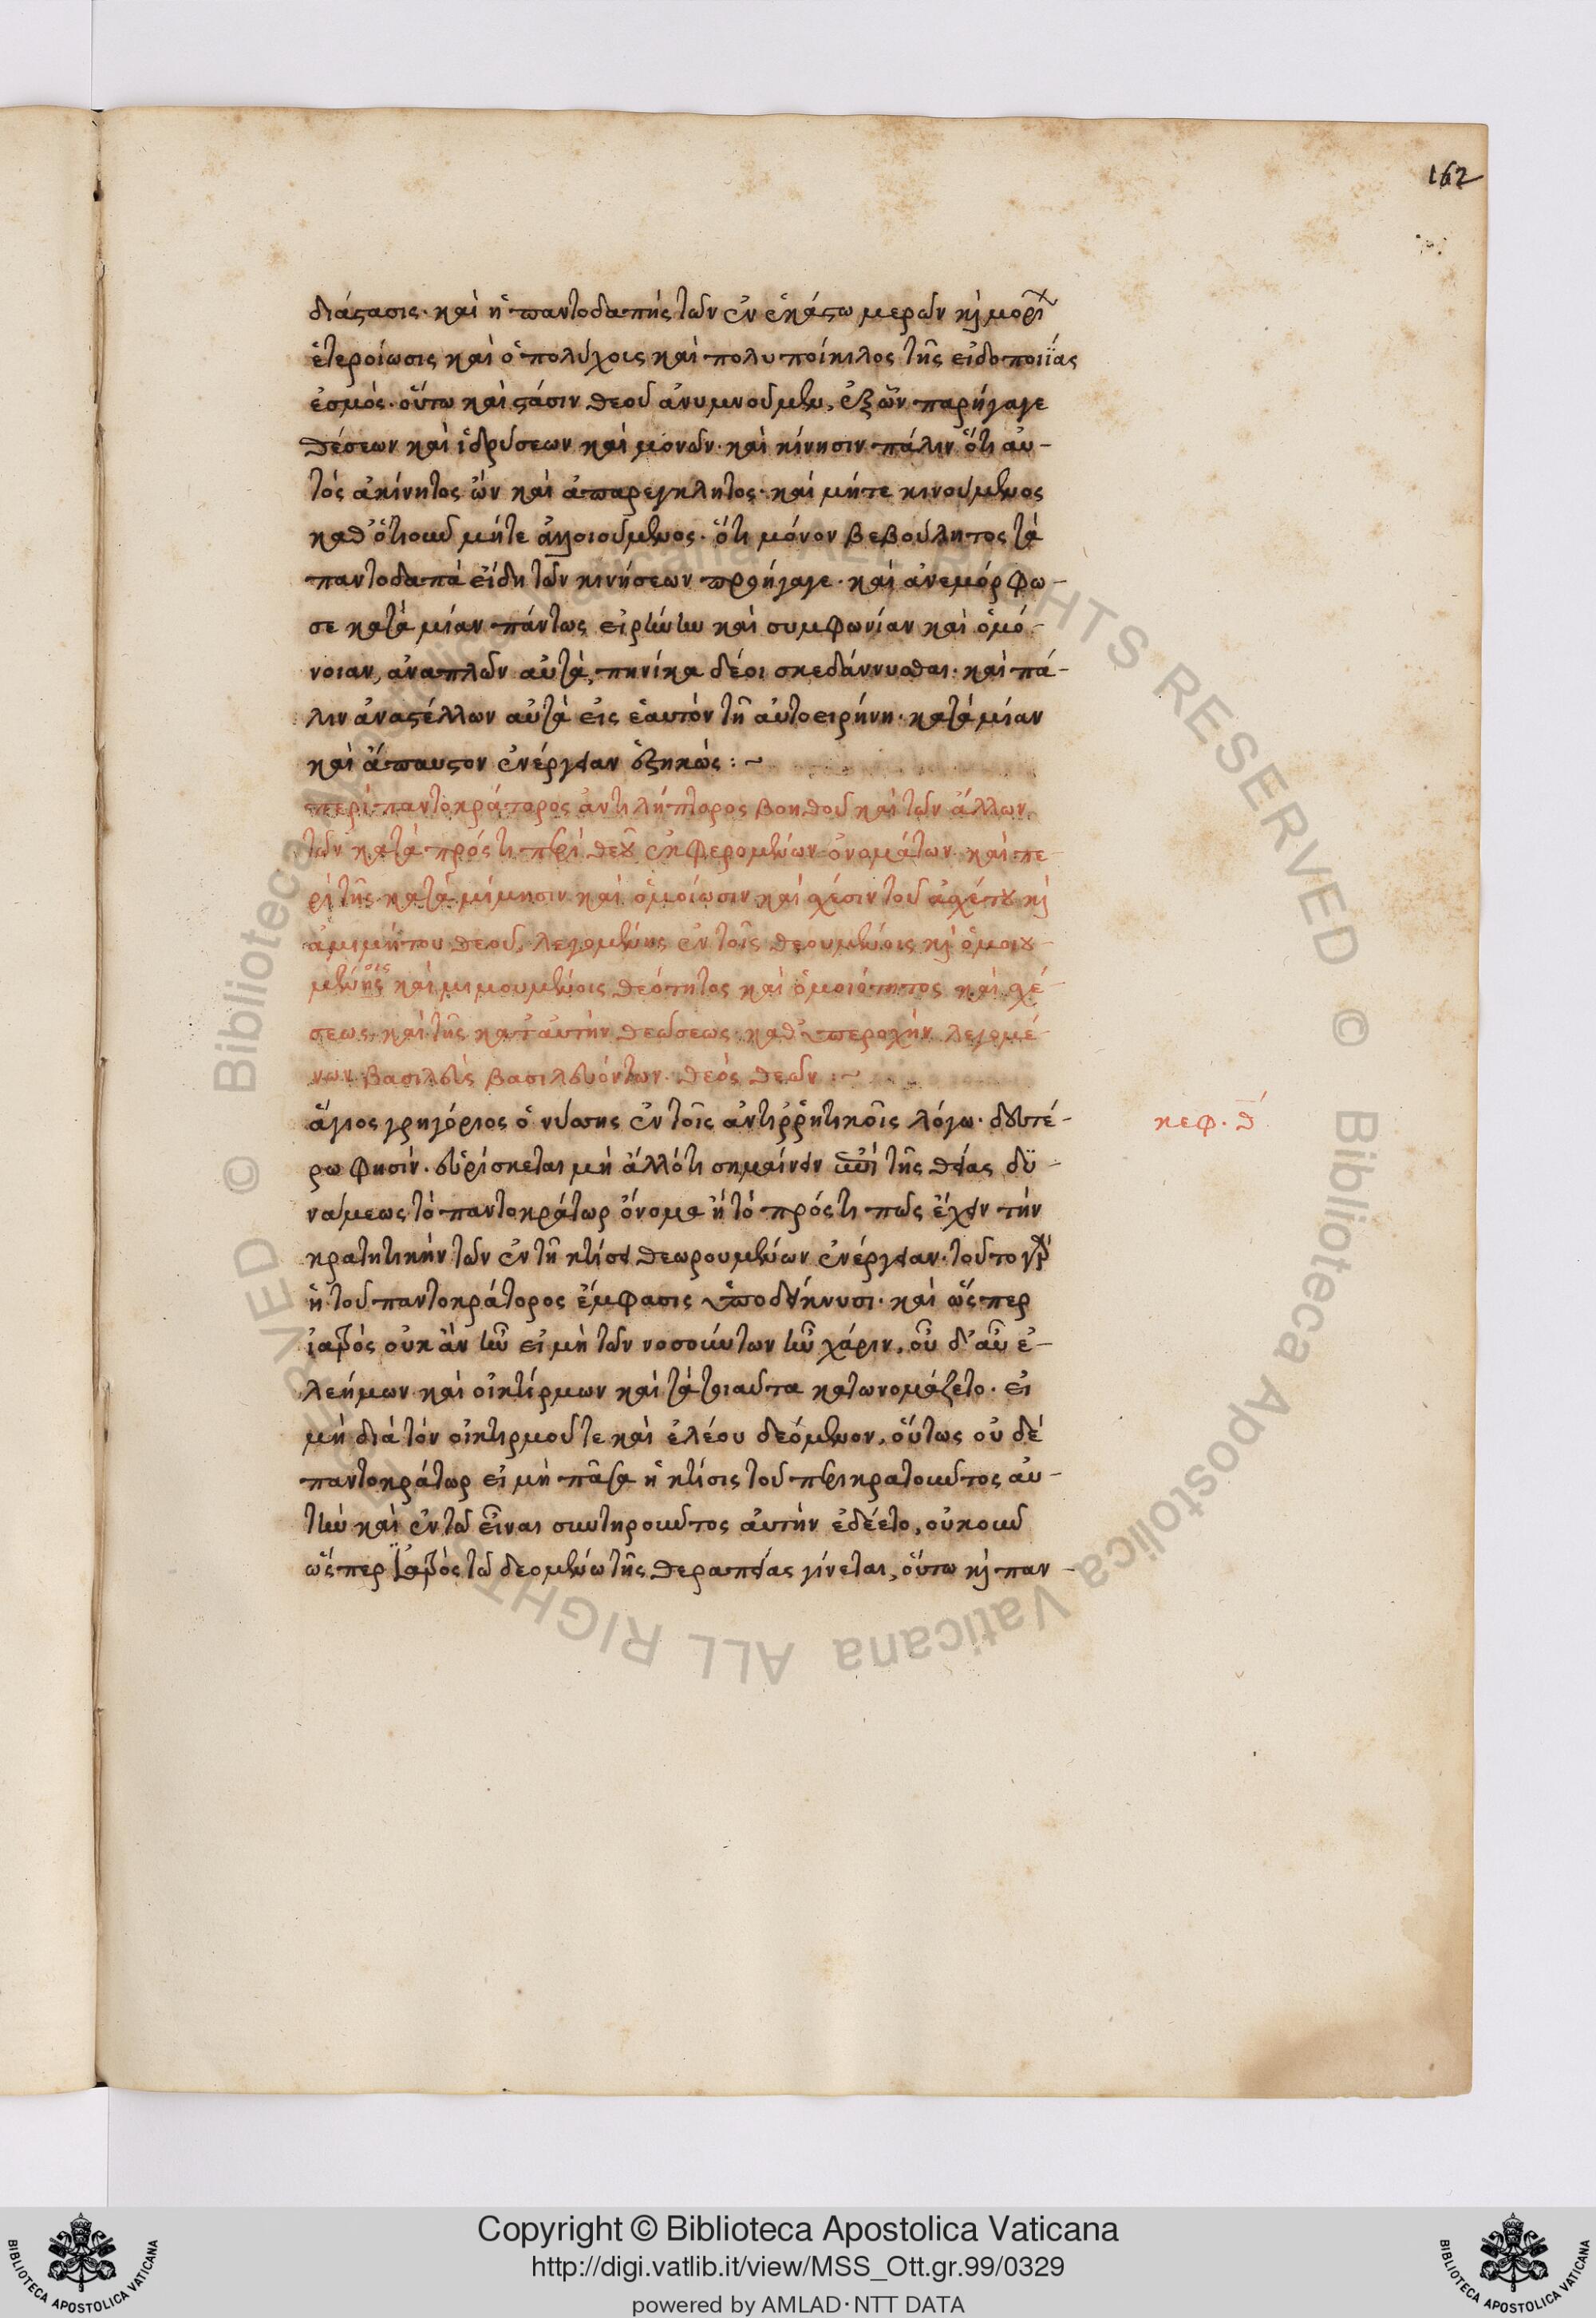 162
διάστασις· καὶ ἡ παντοδαπὴς τῶν ἐν ἑκάστω μερῶν καὶ μορί
ἑτεροίωσις καὶ ὁ πολύχους καὶ πολυποίκιλος τῆς εἰδοποιΐας
ἑσμός· οὕτω καὶ στάσιν θεοῦ ἀνυμνοῦμεν, ἐξ ὧν παρήγαγε
θέσεων καὶ ἱδρύσεων καὶ μονῶν· καὶ κίνησιν πάλιν ὅτι αὐ-
τὸς ἀκίνητος ὢν καὶ ἀπαρεγκλητος· καὶ μήτε κινούμενος
καθ' ὁτιοῦν μήτε ἀλλοιούμενος· ὅτι μόνον βεβούλητος τὰ
παντοδαπὰ εἴδη τῶν κινήσεων προήγαγε· καὶ ἀνεμόρφω-
σε κατὰ μίαν πάντως εἰρήνην καὶ συμφωνίαν καὶ ὁμό-
νοιαν, ἀναπλῶν αὐτὰ, πηνίκα δέοι σκεδάννυσθαι· καὶ πά-
λιν ἀναστέλλων αὐτὰ εἰς ἑαυτὸν τῆ αὐτοειρήνη· κατὰ μίαν
καὶ ἄπαυστον ἐνέργειαν ἑξηκώς :~
περὶ παντοκράτορος ἀντιλήπτορος βοηθοῦ καὶ τῶν ἄλλων
τῶν κατὰ πρός τι περὶ θεοῦ ἐκφερομένων ὀνομάτων· καὶ πε-
ρὶ τῆς κατὰ μίμησιν καὶ ὁμοίωσιν καὶ σχέσιν τοῦ ἀσχέτου καὶ
ἀμιμήτου θεοῦ, λεγομένης ἐν τοῖς θεουμένοις καὶ ὁμοιου-
μένης οις καὶ μιμουμένοις θεότητος καὶ ὁμοιότητος καὶ σχέ-
σεως· καὶ τῆς κατ' αὐτὴν θεώσεως· καθ' ὑπεροχὴν λεγομέ-
νων· βασιλεὺς βασιλευόντων· θεὸς θεῶν :~
ἅγιος γρηγόριος ὁ νύσσης ἐν τοῖς ἀντιῤῥητικοῖς λόγω· δευτέ-
κεφ. θ´
ρω φησίν· εὑρίσκεται μὴ ἄλλό τι σημαίνειν ἐπὶ τῆς θείας δυ-
νάμεως τὸ παντοκράτωρ ὄνομα ἢ τὸ πρός τι πῶς ἔχειν τὴν
κρατητικὴν τῶν ἐν τῆ κτίσει θεωρουμένων ἐνέργειαν· τοῦτο γὰρ
ἡ τοῦ παντοκράτορος ἔμφασις ὑποδείκνυσι· καὶ ὥσπερ
ἰατρὸς οὐκ ἂν ἦν εἰ μὴ τῶν νοσούντων ἦν χάριν, οὗ δ' αὖ ἐ-
λεήμων καὶ οἰκτίρμων καὶ τὰ τοιαῦτα κατωνομάζετο· εἰ
μὴ διὰ τὸν οἰκτιρμοῦ τε καὶ ἐλέου δεόμενον, οὕτως οὐ δὲ
παντοκράτωρ εἰ μὴ πᾶσα ἡ κτίσις τοῦ περικρατοῦντος αὐ-
τὴν καὶ ἐν τῶ εἶναι συντηροῦντος αὐτὴν ἐδέετο, οὐκοῦν
ὥσπερ ἰατρὸς τῶ δεομένω τῆς θεραπείας γίνεται, οὕτω καὶ παν-
Copyright © Biblioteca Apostolica Vaticana
http://digi.vatlib.it/view/MSS_Ott.gr.99/0329
powered by AMLAD·NTT DATA
BIBLIOTECA APOSTOLICA VATICANA
BIBLIOTECA APOSTOLICA VATICANA
© Biblioteca Apostolica Vaticana ALL RIGHTS RESERVED © Biblioteca Apostolica Vaticana ALL RIGHTS RESERVED